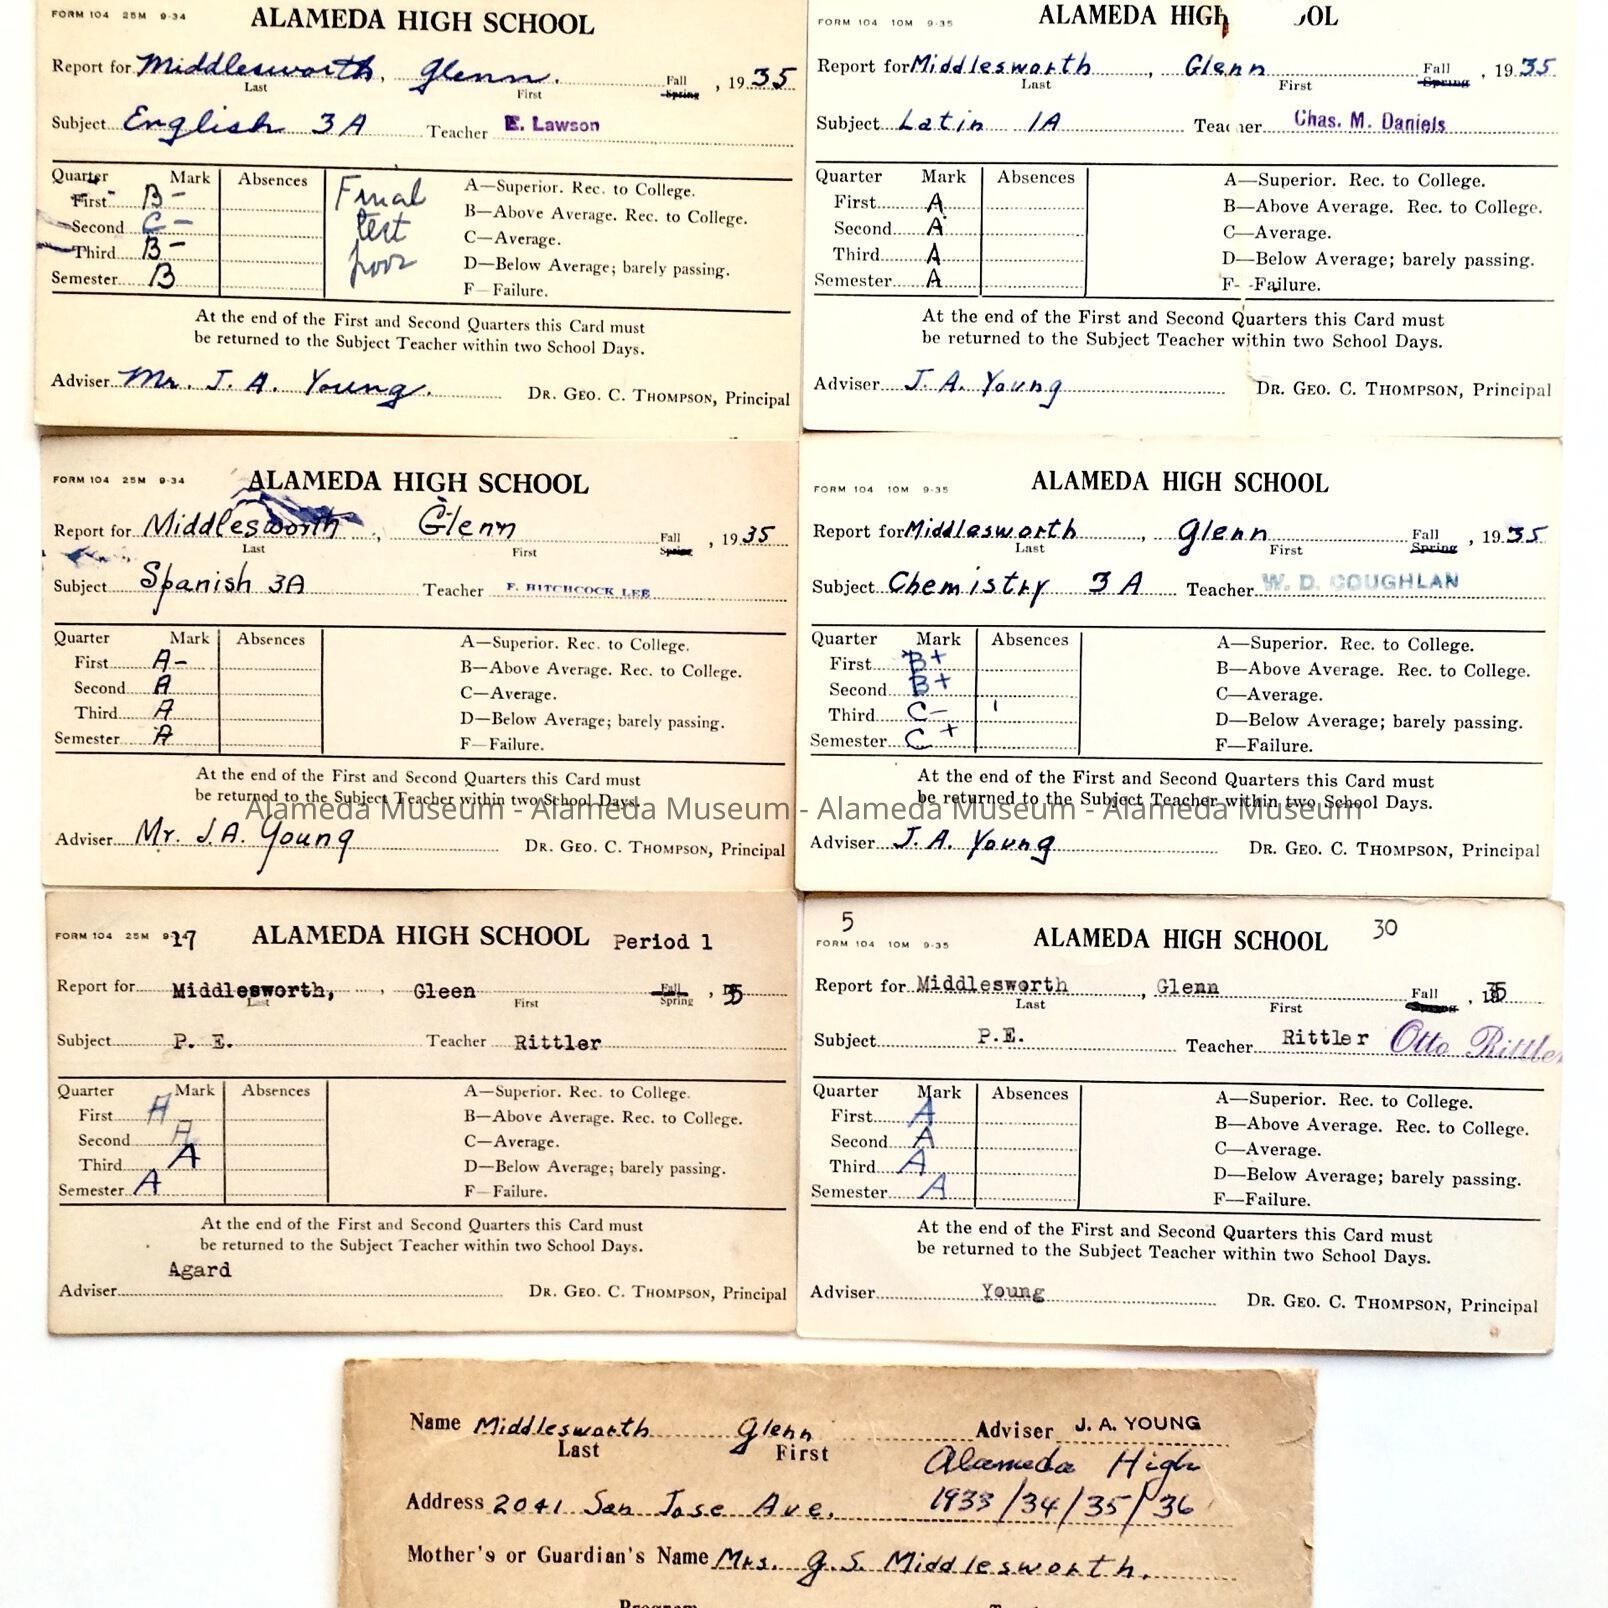 FORM 104 25M 9-34 ALAMEDA HIGH SCHOOL
Report for Middlesworth, Glenn. Fall Spring, 1935
Last First
Subject English 3A Teacher E. Lawson
Quarter Mark Absences
First B-
Second C-
Third B-
Semester B
Final
test
poor
A—Superior. Rec. to College.
B—Above Average. Rec. to College.
C—Average.
D—Below Average; barely passing.
F—Failure.
At the end of the First and Second Quarters this Card must
be returned to the Subject Teacher within two School Days.
Adviser Mr. J. A. Young. DR. GEO. C. THOMPSON, Principal
FORM 104 10M 9-35 ALAMEDA HIGH OOL
Report for Middlesworth, Glenn Fall Spring, 1935
Last First
Subject Latin 1A Teacher Chas. M. Daniels
Quarter Mark Absences
First A
Second A
Third A
Semester A
A—Superior. Rec. to College.
B—Above Average. Rec. to College.
C—Average.
D—Below Average; barely passing.
F—Failure.
At the end of the First and Second Quarters this Card must
be returned to the Subject Teacher within two School Days.
Adviser J. A. Young DR. GEO. C. THOMPSON, Principal
FORM 104 25M 9-34 ALAMEDA HIGH SCHOOL
Report for Middlesworth, Glenn Fall Spring, 1935
Last First
Subject Spanish 3A Teacher F. HITCHCOCK LEE
Quarter Mark Absences
First A-
Second A
Third A
Semester A
A—Superior. Rec. to College.
B—Above Average. Rec. to College.
C—Average.
D—Below Average; barely passing.
F—Failure.
At the end of the First and Second Quarters this Card must
be returned to the Subject Teacher within two School Days.
Adviser Mr. J. A. Young DR. GEO. C. THOMPSON, Principal
FORM 104 10M 9-35 ALAMEDA HIGH SCHOOL
Report for Middlesworth, Glenn Fall Spring, 1935
Last First
Subject Chemistry 3A Teacher W. D. COUGHLAN
Quarter Mark Absences
First B+
Second B+
Third C- 1
Semester C+
A—Superior. Rec. to College.
B—Above Average. Rec. to College.
C—Average.
D—Below Average; barely passing.
F—Failure.
At the end of the First and Second Quarters this Card must
be returned to the Subject Teacher within two School Days.
Adviser J. A. Young DR. GEO. C. THOMPSON, Principal
Alameda Museum - Alameda Museum - Alameda Museum - Alameda Museum
FORM 104 25M 17 ALAMEDA HIGH SCHOOL Period 1
Report for Middlesworth, Gleen Fall Spring, 35
Last First
Subject P. E. Teacher Rittler
Quarter Mark Absences
First A
Second A
Third A
Semester A
A—Superior. Rec. to College.
B—Above Average. Rec. to College.
C—Average.
D—Below Average; barely passing.
F—Failure.
At the end of the First and Second Quarters this Card must
be returned to the Subject Teacher within two School Days.
Agard
Adviser DR. GEO. C. THOMPSON, Principal
5 30
FORM 104 10M 9-35 ALAMEDA HIGH SCHOOL
Report for Middlesworth, Glenn Fall, 35
Last First
Subject P.E. Teacher Rittler Otto Rittler
Quarter Mark Absences
First A
Second A
Third A
Semester A
A—Superior. Rec. to College.
B—Above Average. Rec. to College.
C—Average.
D—Below Average; barely passing.
F—Failure.
At the end of the First and Second Quarters this Card must
be returned to the Subject Teacher within two School Days.
Adviser Young DR. GEO. C. THOMPSON, Principal
Name Middlesworth Glenn Adviser J. A. YOUNG
Last First
Alameda High
Address 2041 San Jose Ave. 1933/34/35/36
Mother's or Guardian's Name Mrs. G. S. Middlesworth.
Program